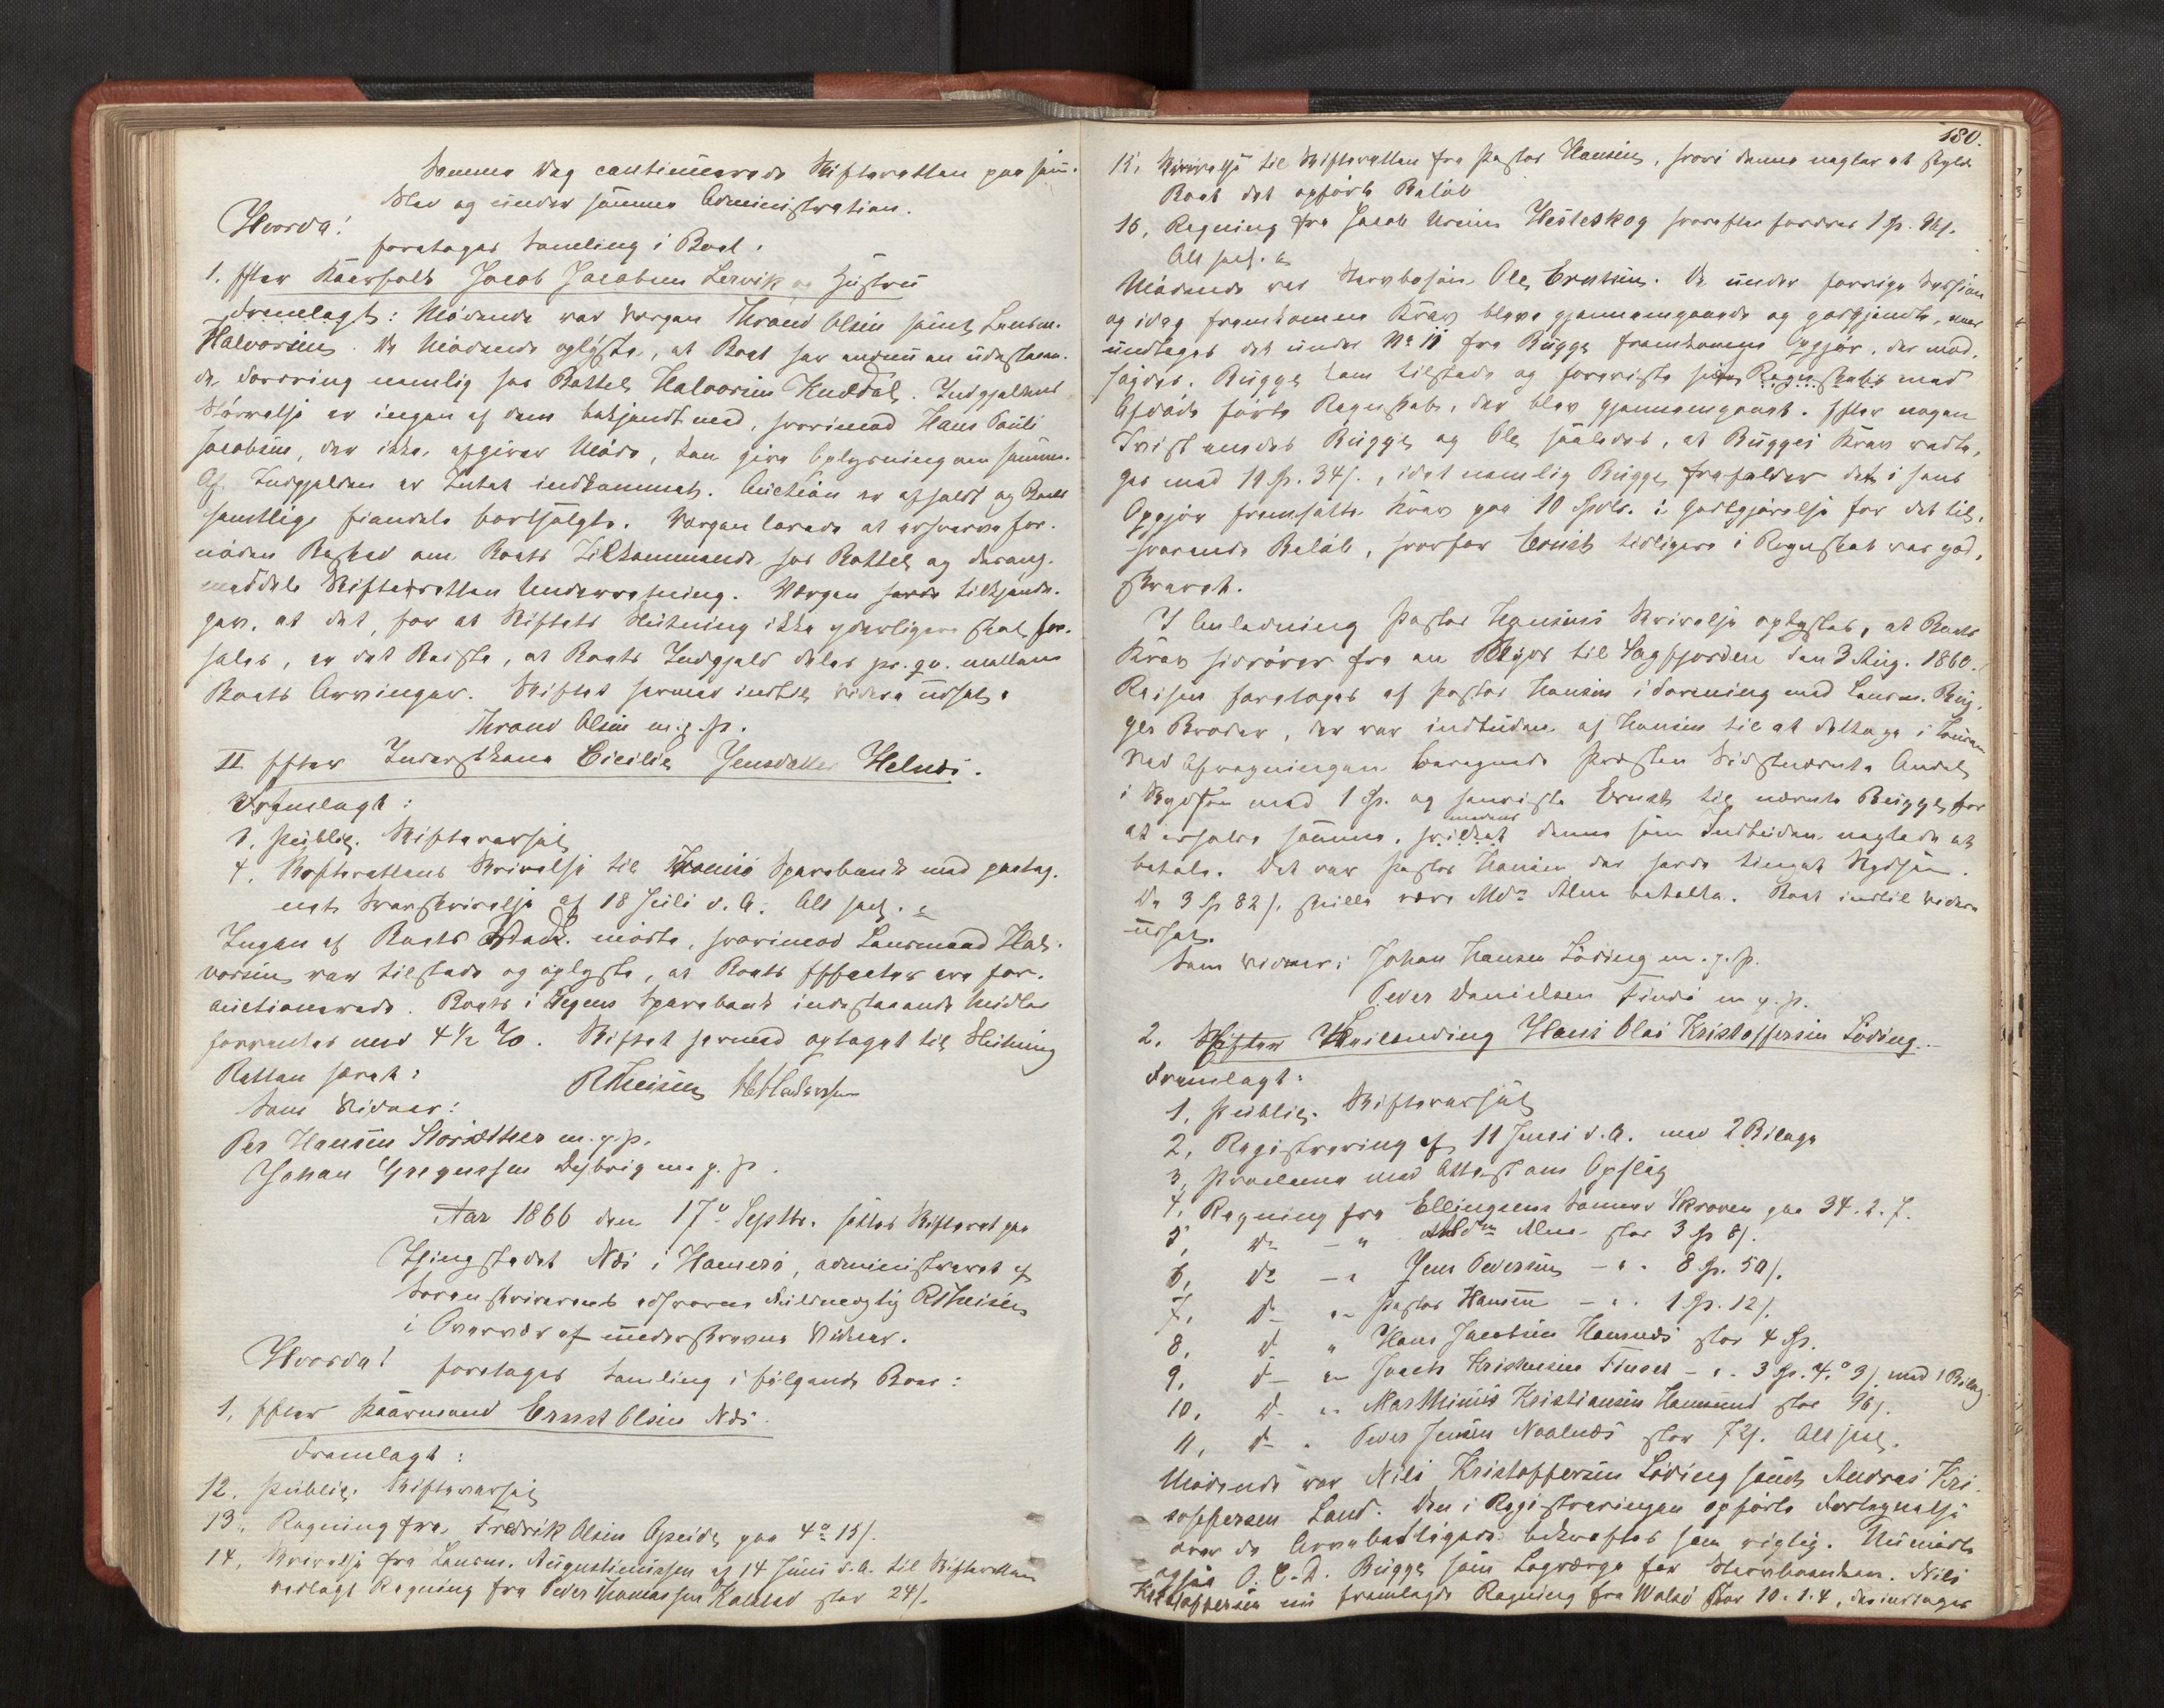 Samme Dag continuerede Skifteretten paa sam.
Sted og under samme Administration.
Hvorda!
foretages Samling i Boet.
1. Efter Kaarfolk Jacob Jacobsen Lervik og Hustru
Fremlagt: Mødende var Vergen Thrond Olsen samt Lensm.
Halvorsen. De Mødende oplyste, at Boet har endnu en udestaaen-
de Fordring nemlig hos Rottel Halvorsen Kuddal. Indgjeldens
Størrelse er ingen af dem bekjendt med, hvorimod Hans Pauli
Jacobsen, der ikke afgiver Møde, kan give Oplysning om samme.
Af Indgjelden er Intet indkommet. Auction er afholdt og Boets
samtlige Eiendele bortsolgte. Vergen lovede at erhverve for-
nøden Besked om Boets Tilkommende hos Rottel og derom
meddele Skifteretten Underretning. Vergen havde tilkjende-
gav, at det, for at Skiftets Slutning ikke yderligere skal for-
hales, er det Bedste, at Boets Indgjeld deles pr. qv. mellem
Boets Arvinger. Skiftet hermed indtil videre udsat.
Thrond Olsen m. p. P.
II Efter Inderstkone Cicilie Jensdatter Helnes.
Fremlagt:
3. Public. Skiftevarsel
4. Skifterettens Skrivelse til Tromsø Sparebank med paateg-
net Svarskrivelse af 18 Juli d. A. Alt hæf.
Ingen af Boets Vedk. mødte, hvorimod Lensmand Hal-
vorsen var tilstede og oplyste, at Boets Effecter ere for-
auctionerede. Boets i Egnens Sparebank indestaaende Midler
forrentes med 4½ %. Skiftet hermed optaget til Slutning
Retten hævet:
RTheisen
Som Vidner:
Per Hansen m. p. P.
Johan Gregersen m. p. P.
Aar 1866 den 17de Septbr. sattes Skifteret paa
Thingstedet Nes i Hamerø, administreret af
Sorenskriverens edsvorne Fuldmægtig RTheisen
i Overvær af underskrevne Vidner.
Hvorda!
foretages Samling i følgende Boer:
1. Efter Kaarmand Ernst Olsen Nes.
Fremlagt:
12. Public. Skiftevarsel
13. Regning fra Fredrik Olsen Opeide paa 4 # 15/.
14. Skrivelse fra Lensm. Augustinussen af 14 Juni d. A. til Skifteretten
vedlagt Regning fra Peder Thomassen Kalstad stor 24/.
180.
15. Skrivelse til Skifteretten fra Pastor Hansen, hvori denne negter at skylde
Boet det opførte Beløb
16. Regning fra Jacob Ursin Hesteskog hvorefter fordres 1 Sp. 96/.
Alt hæf.
Mødende var Stervbosøn Ole Ernstsen. De under forrige Session
og idag fremkomne Krav bleve gjennemgaaede og godkjendte, naar
undtages det under No 11 fra Bugge fremkomne Opgjør, der mod-
sagdes. Bugge kom tilstede og foreviste sit Regnskab med
Afdøde førte Regnskab, der blev gjennemgaaet. Efter nogen
Tvist enedes Bugge og Ole saaledes, at Bugges Krav vedta-
ges med 19 Sp. 34/., idet nemlig Bugge frafalder det i hans
Opgjør fremsatte Krav paa 10 Spdlr. i Godtgjørelse for det til-
svarende Beløb, hvorfor Ernst tidligere i Regnskab var god-
skrevet.
I Anledning Pastor Hansens Skrivelse oplystes, at Boets
Krav hidrører fra en Skyds til Sagfjorden den 3 Aug. 1860.
Reisen foretoges af Pastor Hansen i Forening med Lensm. Bug-
ges Broder, der var indbuden af Hansen til at deltage i Touren
Ved Afregningen beregnede Presten Sidstnævnte Andel
i Skydsen med 1 Sp. og henviste Ernst til nævnte Bugge for
at erholde samme, medens denne som Indbuden negtede at
betale. Det var Pastor Hansen der havde tinget Skydsen.
De 3 Sp 82/. skulle være Mdm Alme betalte. Boet indtil videre
udsat.
Som Vidner: Johan Hansen Løding m. p. P.
Peder Danielsen Finnø m. p. P.
2. Efter Huilending Hans Olai Kristoffersen Løding.
Fremlagt:
1. Public. Skiftevarsel
2. Registrering af 11 Juni d. A. med 2 Bilage
3. Proclama med Attest om Opslag
4. Regning fra Ellingsens Sønner Skroven paa 34. 2. 7.
5. do – " Mdm Alme stor 3 Sp 8/.
6. do – " Jens Pedersen – " . 8 Sp. 50/.
7. d – Pastor Hansen – " . 1 Sp. 12/.
8. d " Hans Jacobsen Hamnes stor 4 Sp.
9. d – Jacob Kristensen Finset – " . 3 Sp. 4. 9/. med 1 Bilag
10. d – Marthinus Kristiansen Hamsund stor 96/.
11. d – Peder Jensen Naalnes stor 72/. Alt hæf.
Mødende var Nils Kristoffersen Løding samt Andreas Kri-
stoffersen Sand. Den i Registreringen opførte Fortegnelse
over de Arveberettigede bekræftes som rigtig. Nu mødte
ogsaa O. C. D. Bugge som Lagverge for Stervboenken. Nils
Kristoffersen nu fremlagde Regning fra Walsø stor 10. 1. 4, der indtages